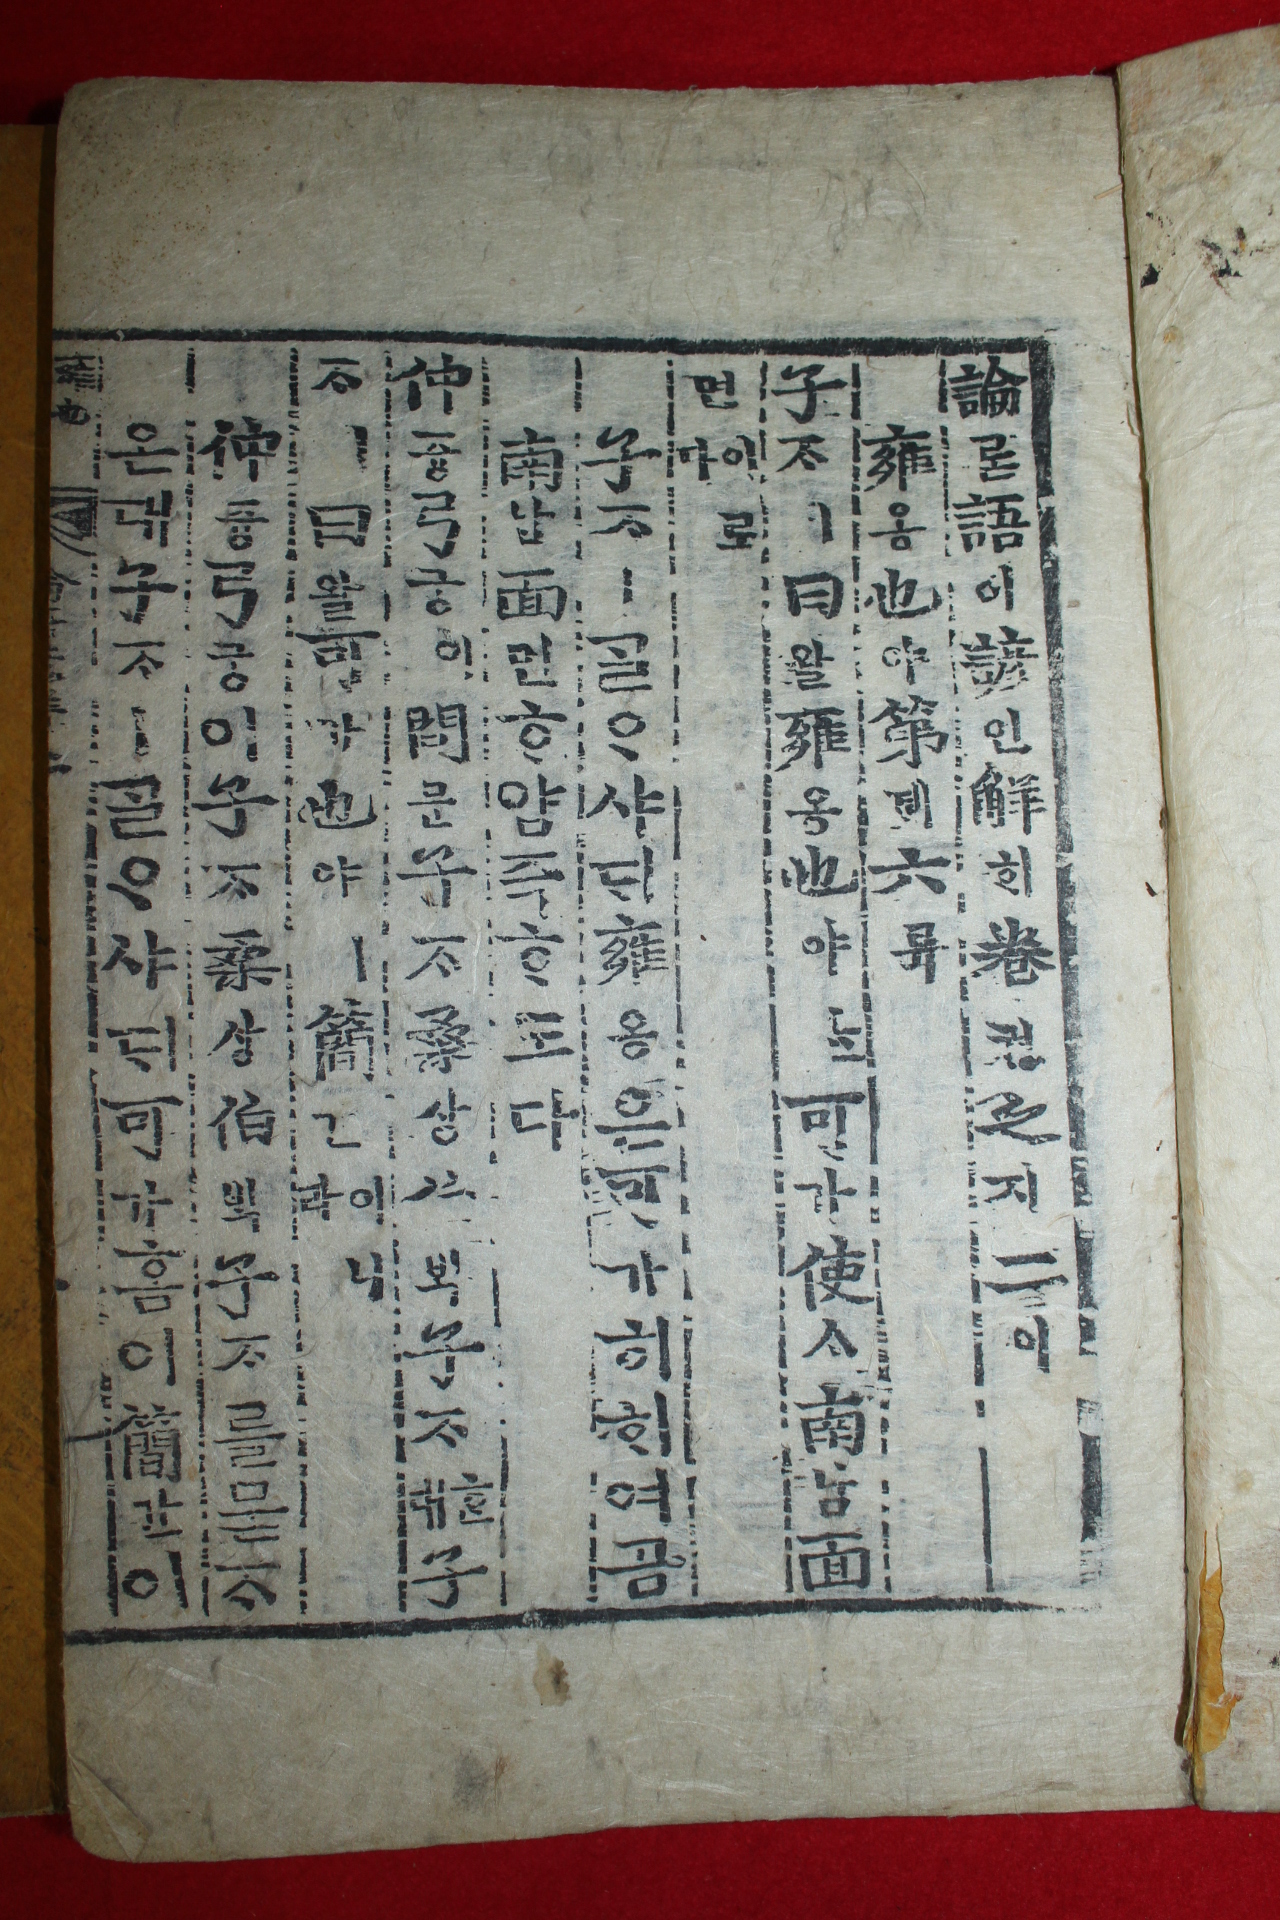 論론語어諺언解ᄒᆡ卷권之지二이
雍옹也야第뎨六륙
子ᄌᆞㅣ曰왈雍옹也야ᄂᆞᆫ可가使ᄉᆞ南남面
면이로다
子ᄌᆞㅣᄀᆞᆯᄋᆞ샤ᄃᆡ雍옹은可가히ᄒᆞ여곰
南남面면ᄒᆞ얌즉ᄒᆞ도다
仲듕弓궁이問문子ᄌᆞ桑상伯ᄇᆡᆨ子ᄌᆞᄒᆞᆫ대子
ᄌᆞㅣ曰왈可가也야ㅣ簡간이니라
仲듕弓궁이子ᄌᆞ桑상伯ᄇᆡᆨ子ᄌᆞ를묻ᄌᆞ
온대子ᄌᆞㅣᄀᆞᆯᄋᆞ샤ᄃᆡ可가홈이簡간이